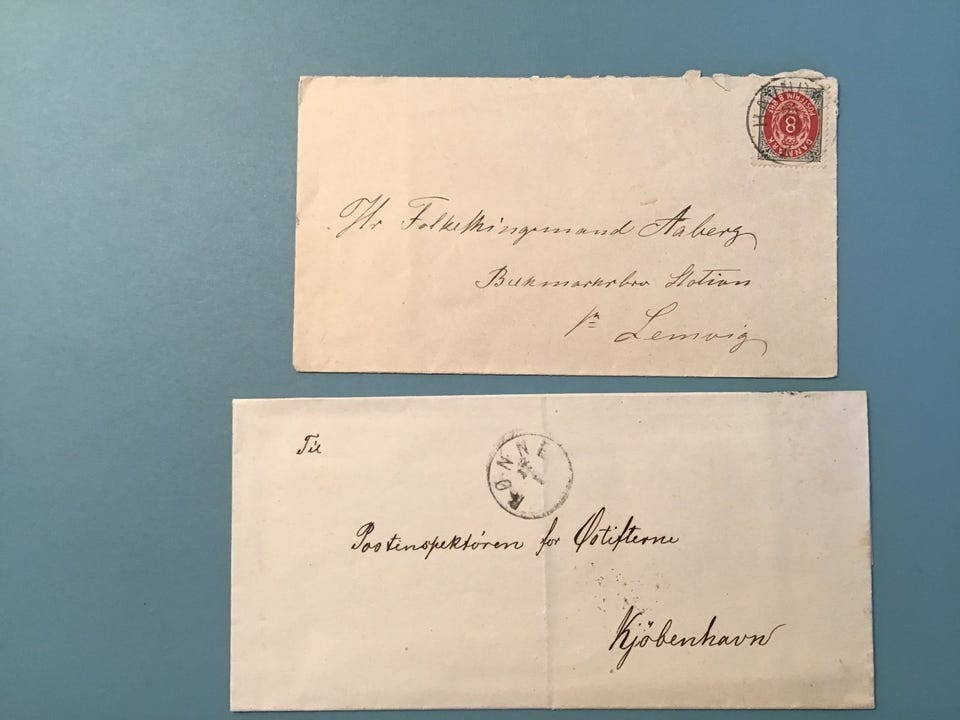 DANMARK
POSTFRIM 8 ØRE
8
Hr Folkethingsmand Aaberg
Bækmarksbro Station
pr Lemvig
Til
RØNNE
Postinspektören for Østifterne
Kjöbenhavn